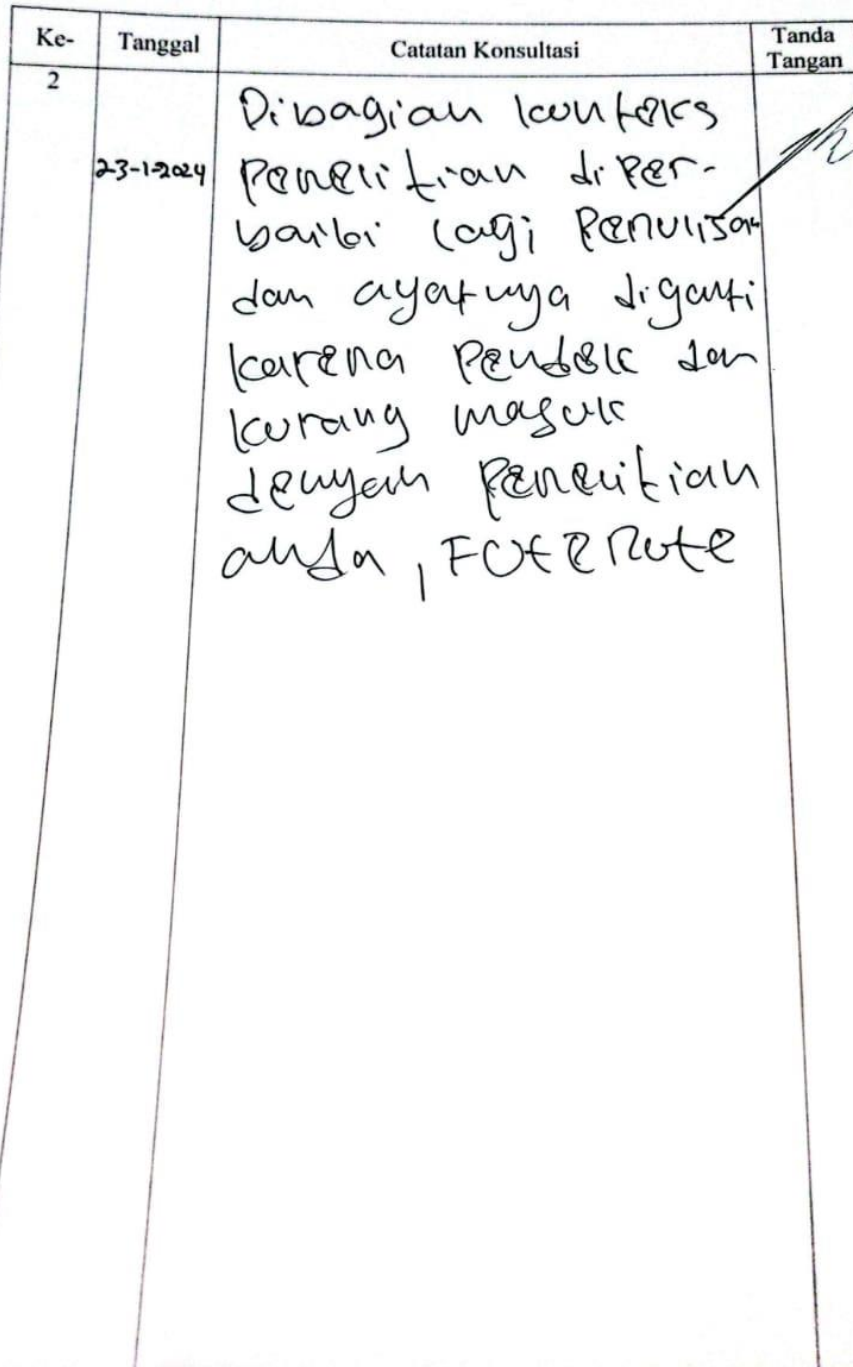 Ke- Tanggal Catatan Konsultasi Tanda Tangan
2
Dibagian konteks
23-1-2024 Penelitian diper-
baiki lagi Penulisan
dan ayatnya diganti
karena Pendek dan
kurang masuk
dengan Penelitian
anda, FOTENOTE